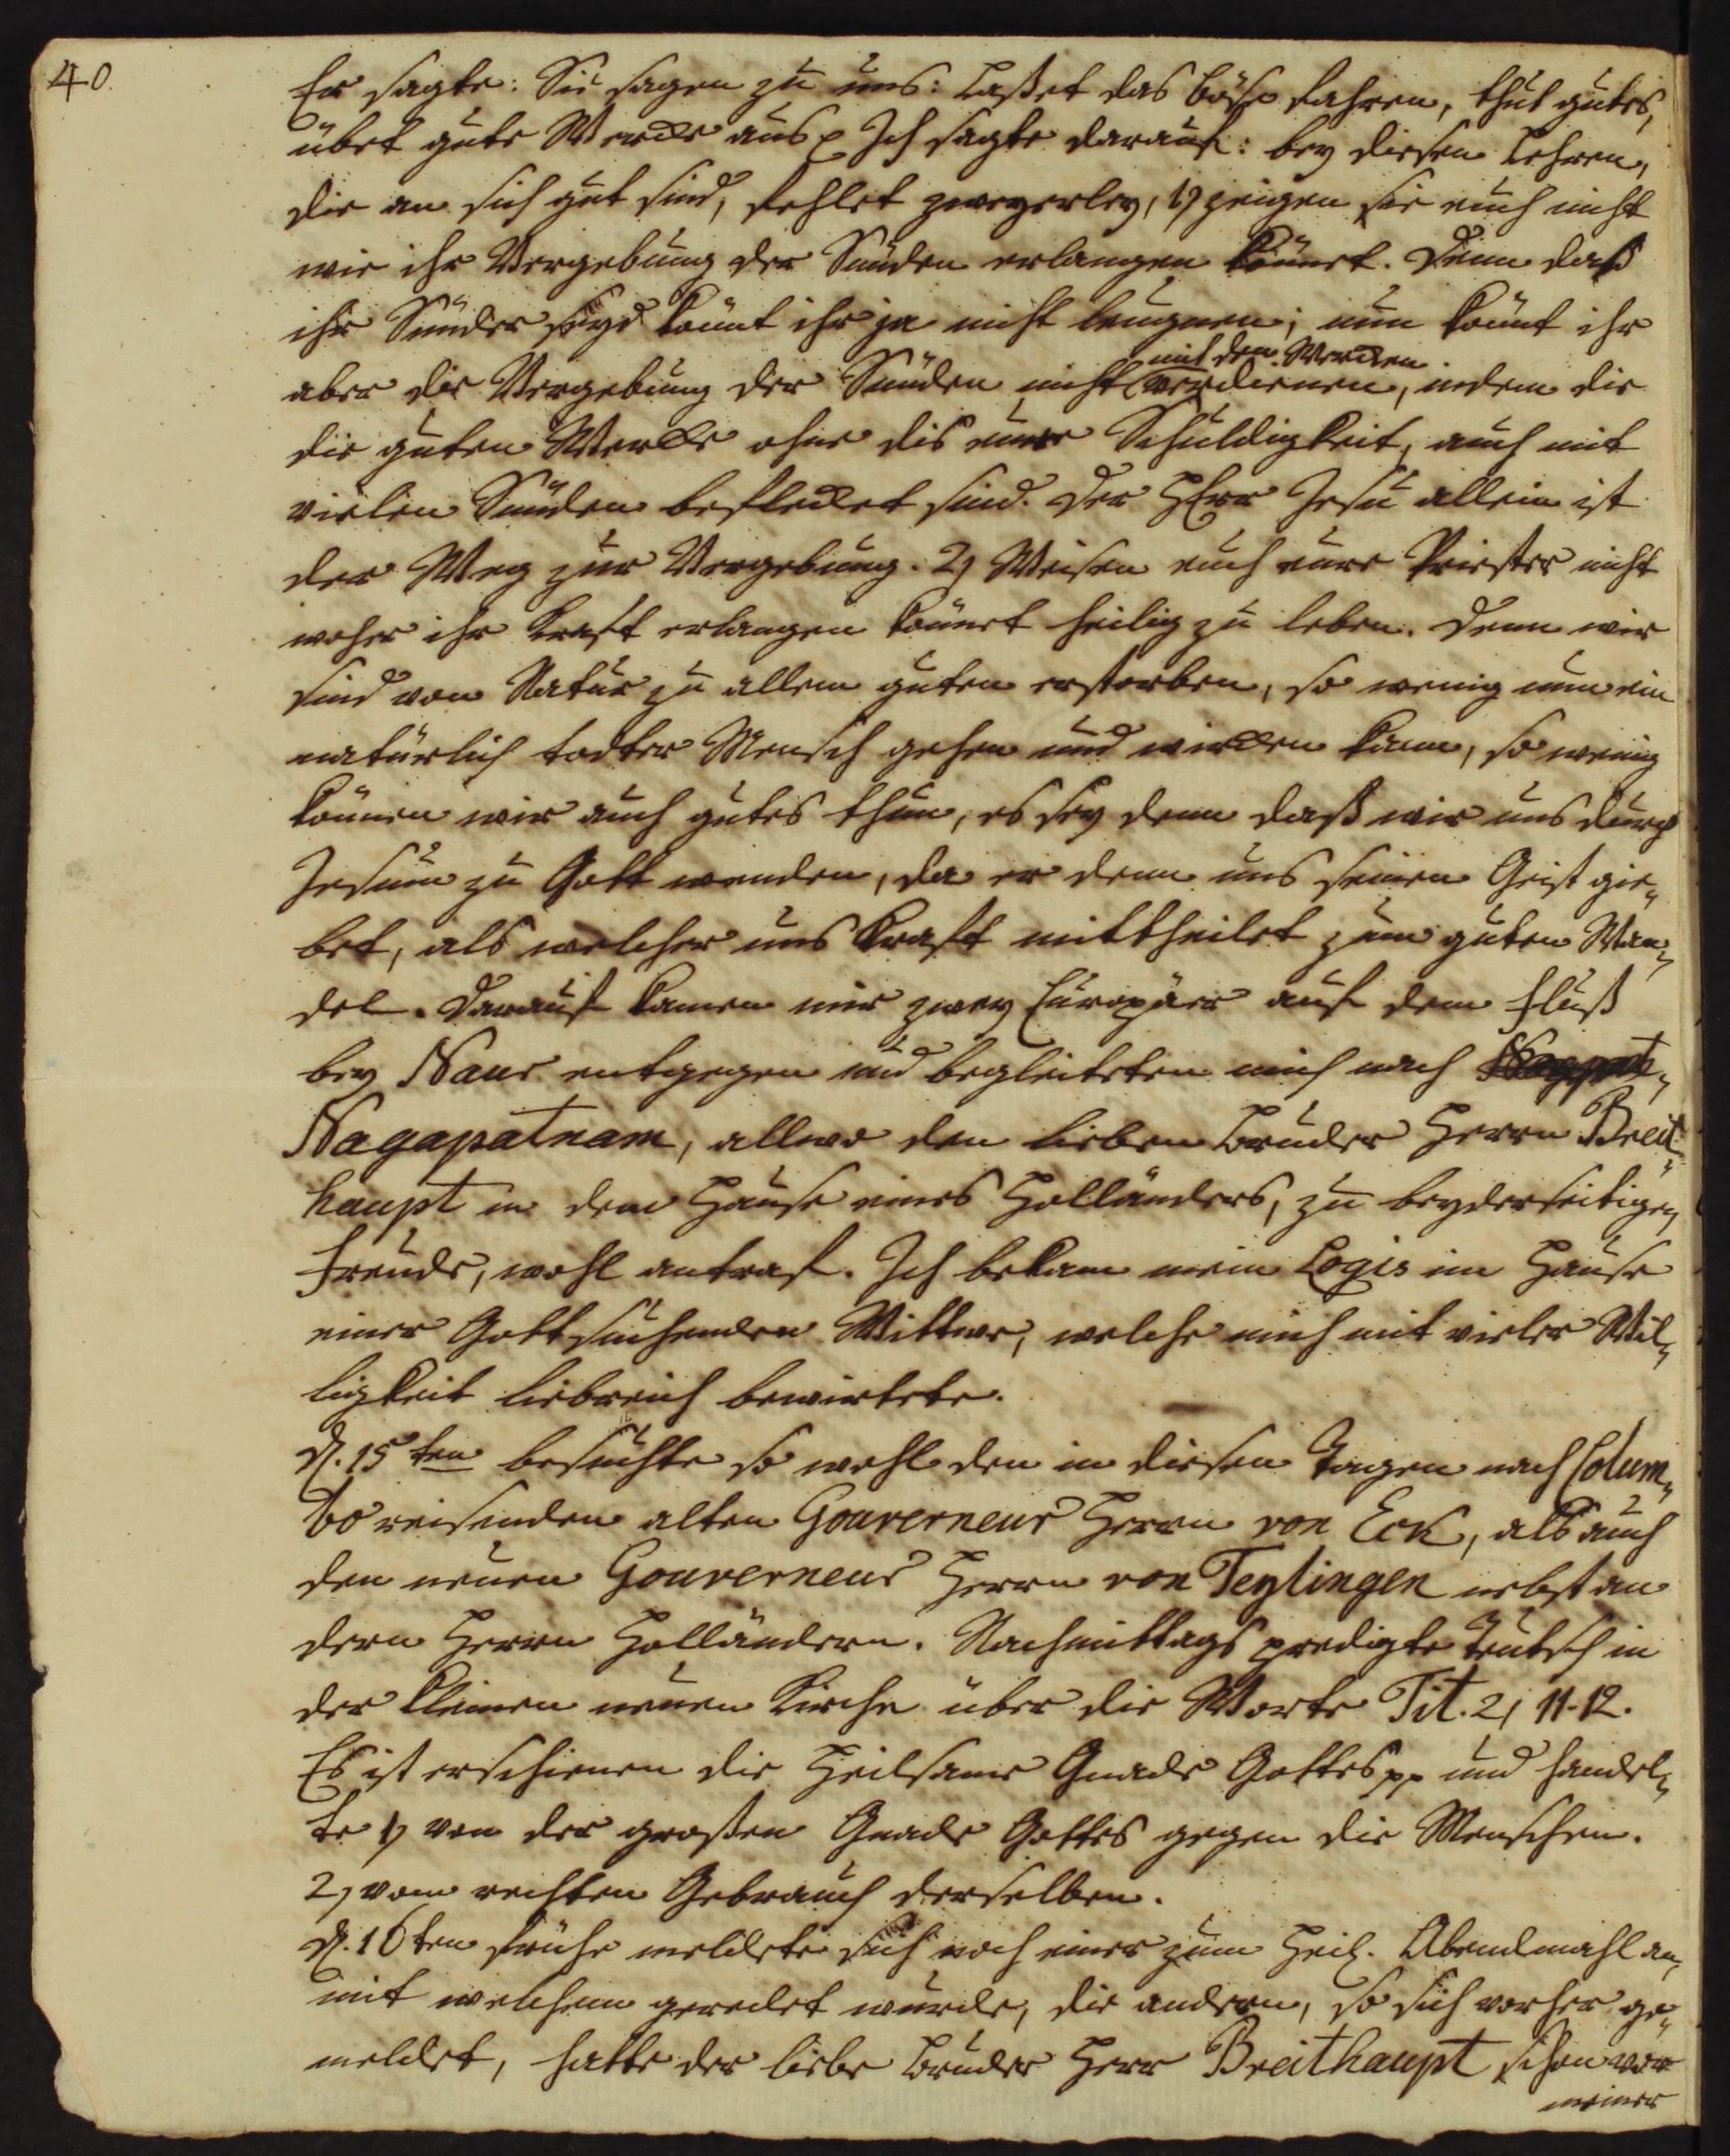 40.
Er sagte: Sie sagen zu uns: Laßet das böse fahren, thut gutes,
übet gute Wercke aus p Ich sagte darauf: bey diesen Lehren,
die an sich gut sind, fehlet zweyerley, 1) zeigen sie euch nicht
wie ihr Vergebung der Sünden erlangen könnet. Denn daß
ihr Sünder seyd könnt ihr ja nicht leugnen; nun könnt ihr
mit den Wercken
aber die Vergebung der Sünden nicht verdienen, indem die
die guten Wercke ohne dis eure Schuldigkeit, auch mit
vielen Sünden beflecket sind. Der HErr Jesu allein ist
der Weg zur Vergebung. 2) Weisen euch eure Priester nicht
woher ihr Kraft erlangen könnet heilig zu leben. Denn wir
sind von Natur zu allem guten erstorben, so wenig nun ein
natürlich todter Mensch gehen und wircken kann, so wenig
können wir auch gutes thun, es sey denn daß wir uns durch
Jesum zu Gott wenden, da er denn uns seinen Geist gie„
bet, als welcher uns Kraft mittheilet zum guten Wan„
del. Darauf kamen mir zwey Europäer auf dem Fluß
bey Naur entgegen und begleiteten mich nach
Nagapatnam, allwo den lieben Bruder Herrn Breit„
haupt in dem Hause eines Holländers, zu beyderseitigen
Freude, wohl antraf. Ich bekam mein Logis im Hause
einer Gottsuchenden Wittwe, welche mich mit vieler Wil„
ligkeit liebreich bewirtete.
d. 15ten besuchte so wohl den in diesen Tagen nach Colum„
bo reisenden alten Gouverneur Herrn von Eck, als auch
den neuen Gouverneur Herrn von Teylingen nebst an
dern Herrn Holländern. Nachmittags predigte Teutsch in
der kleinen neuen Kirche über die Worte Tit. 2, 11-12.
Es ist erschienen die Heilsame Gnade Gottes pp und handel„
te 1) von der großen Gnade Gottes gegen die Menschen.
2, vom rechten Gebrauch derselben.
d. 16ten frühe meldete sich noch einer zum Heil. Abendmahl an,
mit welchem geredet wurde, die andern, so sich vorher ge„
meldet, hatte der liebe Bruder Herr Breithaupt schon vor
meiner